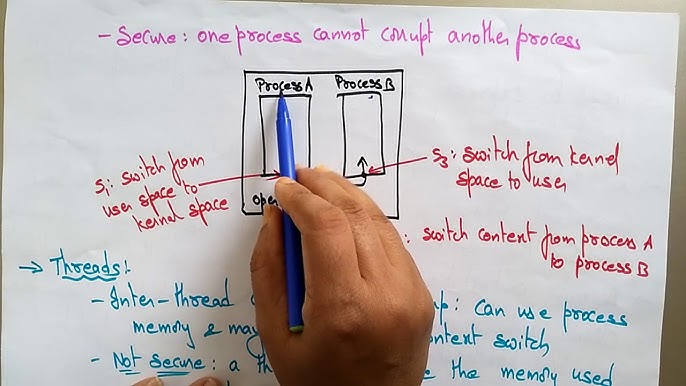 - Secure: one process cannot corrupt another process
Process A
Process B
S1: switch from
user space to
kernel space
S3: switch from kernel
space to user
: switch content from process A
to process B
→ Threads:
- Inter-thread
: Can use process
memory & may
content switch
- Not secure: a
the memory used